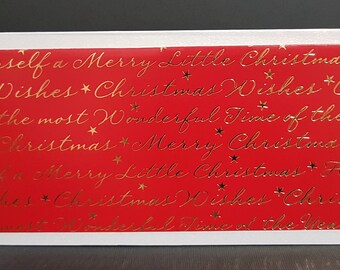 self a Merry Little Christmas
Wishes * Christmas Wishes *
the most Wonderful Time of the
Christmas * Merry Christmas
of a Merry Little Christmas *
Wishes * Christmas Wishes * Chris
Wonderful Time of the Year